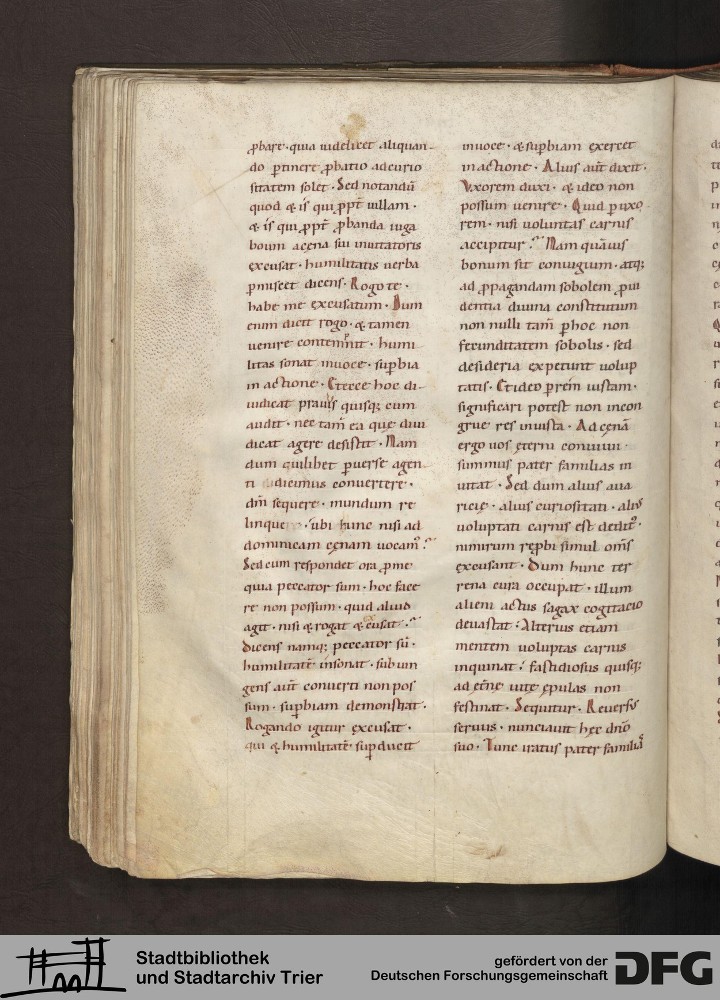 ꝓbare · quia uidelicet aliquan-
do ꝑtinere ꝓbatio ad curio
sitatem solet · Sed notandū
quod & is qui ꝓpt̄ uillam ·
& is qui ꝓpt̄ ꝓbanda iuga
boum a cęna sui inuitatoris
excusat · humilitatis uerba
ꝑmiscet dicens · Rogo te ·
habe me excusatum · Dum
enim dicit rogo · & tamen
uenire contemnit · humi
litas sonat in uoce · suꝑbia
in actione · Et ecce hoc di-
iudicat prauus quisq; cum
audit · nec tam̄ ea quę diiu
dicat agere desistit · Nam
dum cuilibet ꝑuerse agen
ti dicimus conuertere ·
dm̄ sequere · mundum re
linque · ubi hunc nisi ad
dominicam cęnam uocam᷒ ?
Sed cum respondet ora ꝓ me
quia peccator sum · hoc face
re non possum · quid aliud
agit · nisi & rogat & excusat ·
Dicens namq; peccator sū ·
humilitatē insonat · subiun
gens aut̄ conuerti non pos
sum · suꝑbiam demonstrat ·
Rogando igitur excusat ·
qui & humilitatē suꝑducit
in uoce · & suꝑbiam exercet
in actione · Alius aut̄ dixit ·
Vxorem duxi · & ideo non
possum uenire · Quid ꝑ uxo
rem · nisi uoluntas carnis
accipitur ? Nam quāuis
bonum sit coniugium · atq;
ad ꝓpagandam sobolem ꝓui
dentia diuina constitutum
non nulli tam̄ ꝑ hoc non
fecunditatem sobolis · sed
desideria expetunt uolup
tatis · Et ideo ꝑ rem iustam ·
significari potest non incon
grue res iniusta · Ad cęnā
ergo uos ęterni conuiuii ·
summus pater familias in
uitat · Sed dum alius aua
ricię · alius curiositati · alius
uoluptati carnis est dedit᷒ ·
nimirum reꝓbi simul om̄s
excusant · Dum hunc ter
rena cura occupat · illum
alieni actus sagax cogitacio
deuastat · Alterius etiam
mentem uoluptas carnis
inquinat · fastidiosus quisq;
ad ęternę uitę ępulas non
festinat · Sequitur · Reuersus
seruus · nunciauit hęc dn̄o
suo · Tunc iratus pater familias
Stadtbibliothek
und Stadtarchiv Trier
gefördert von der
Deutschen Forschungsgemeinschaft
DFG